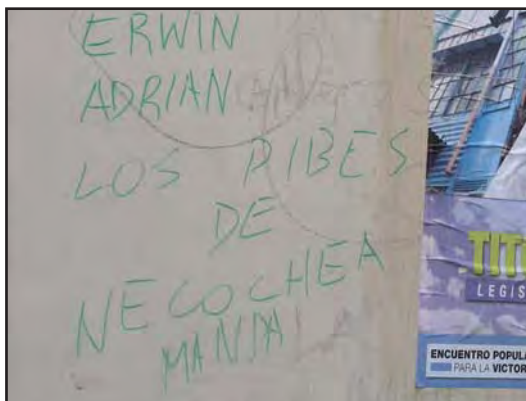 ERWIN
ADRIAN
LOS PIBES
DE
NECOCHEA
MANDA
TIT
LEGIS
ENCUENTRO POPULA
PARA LA VICTOR